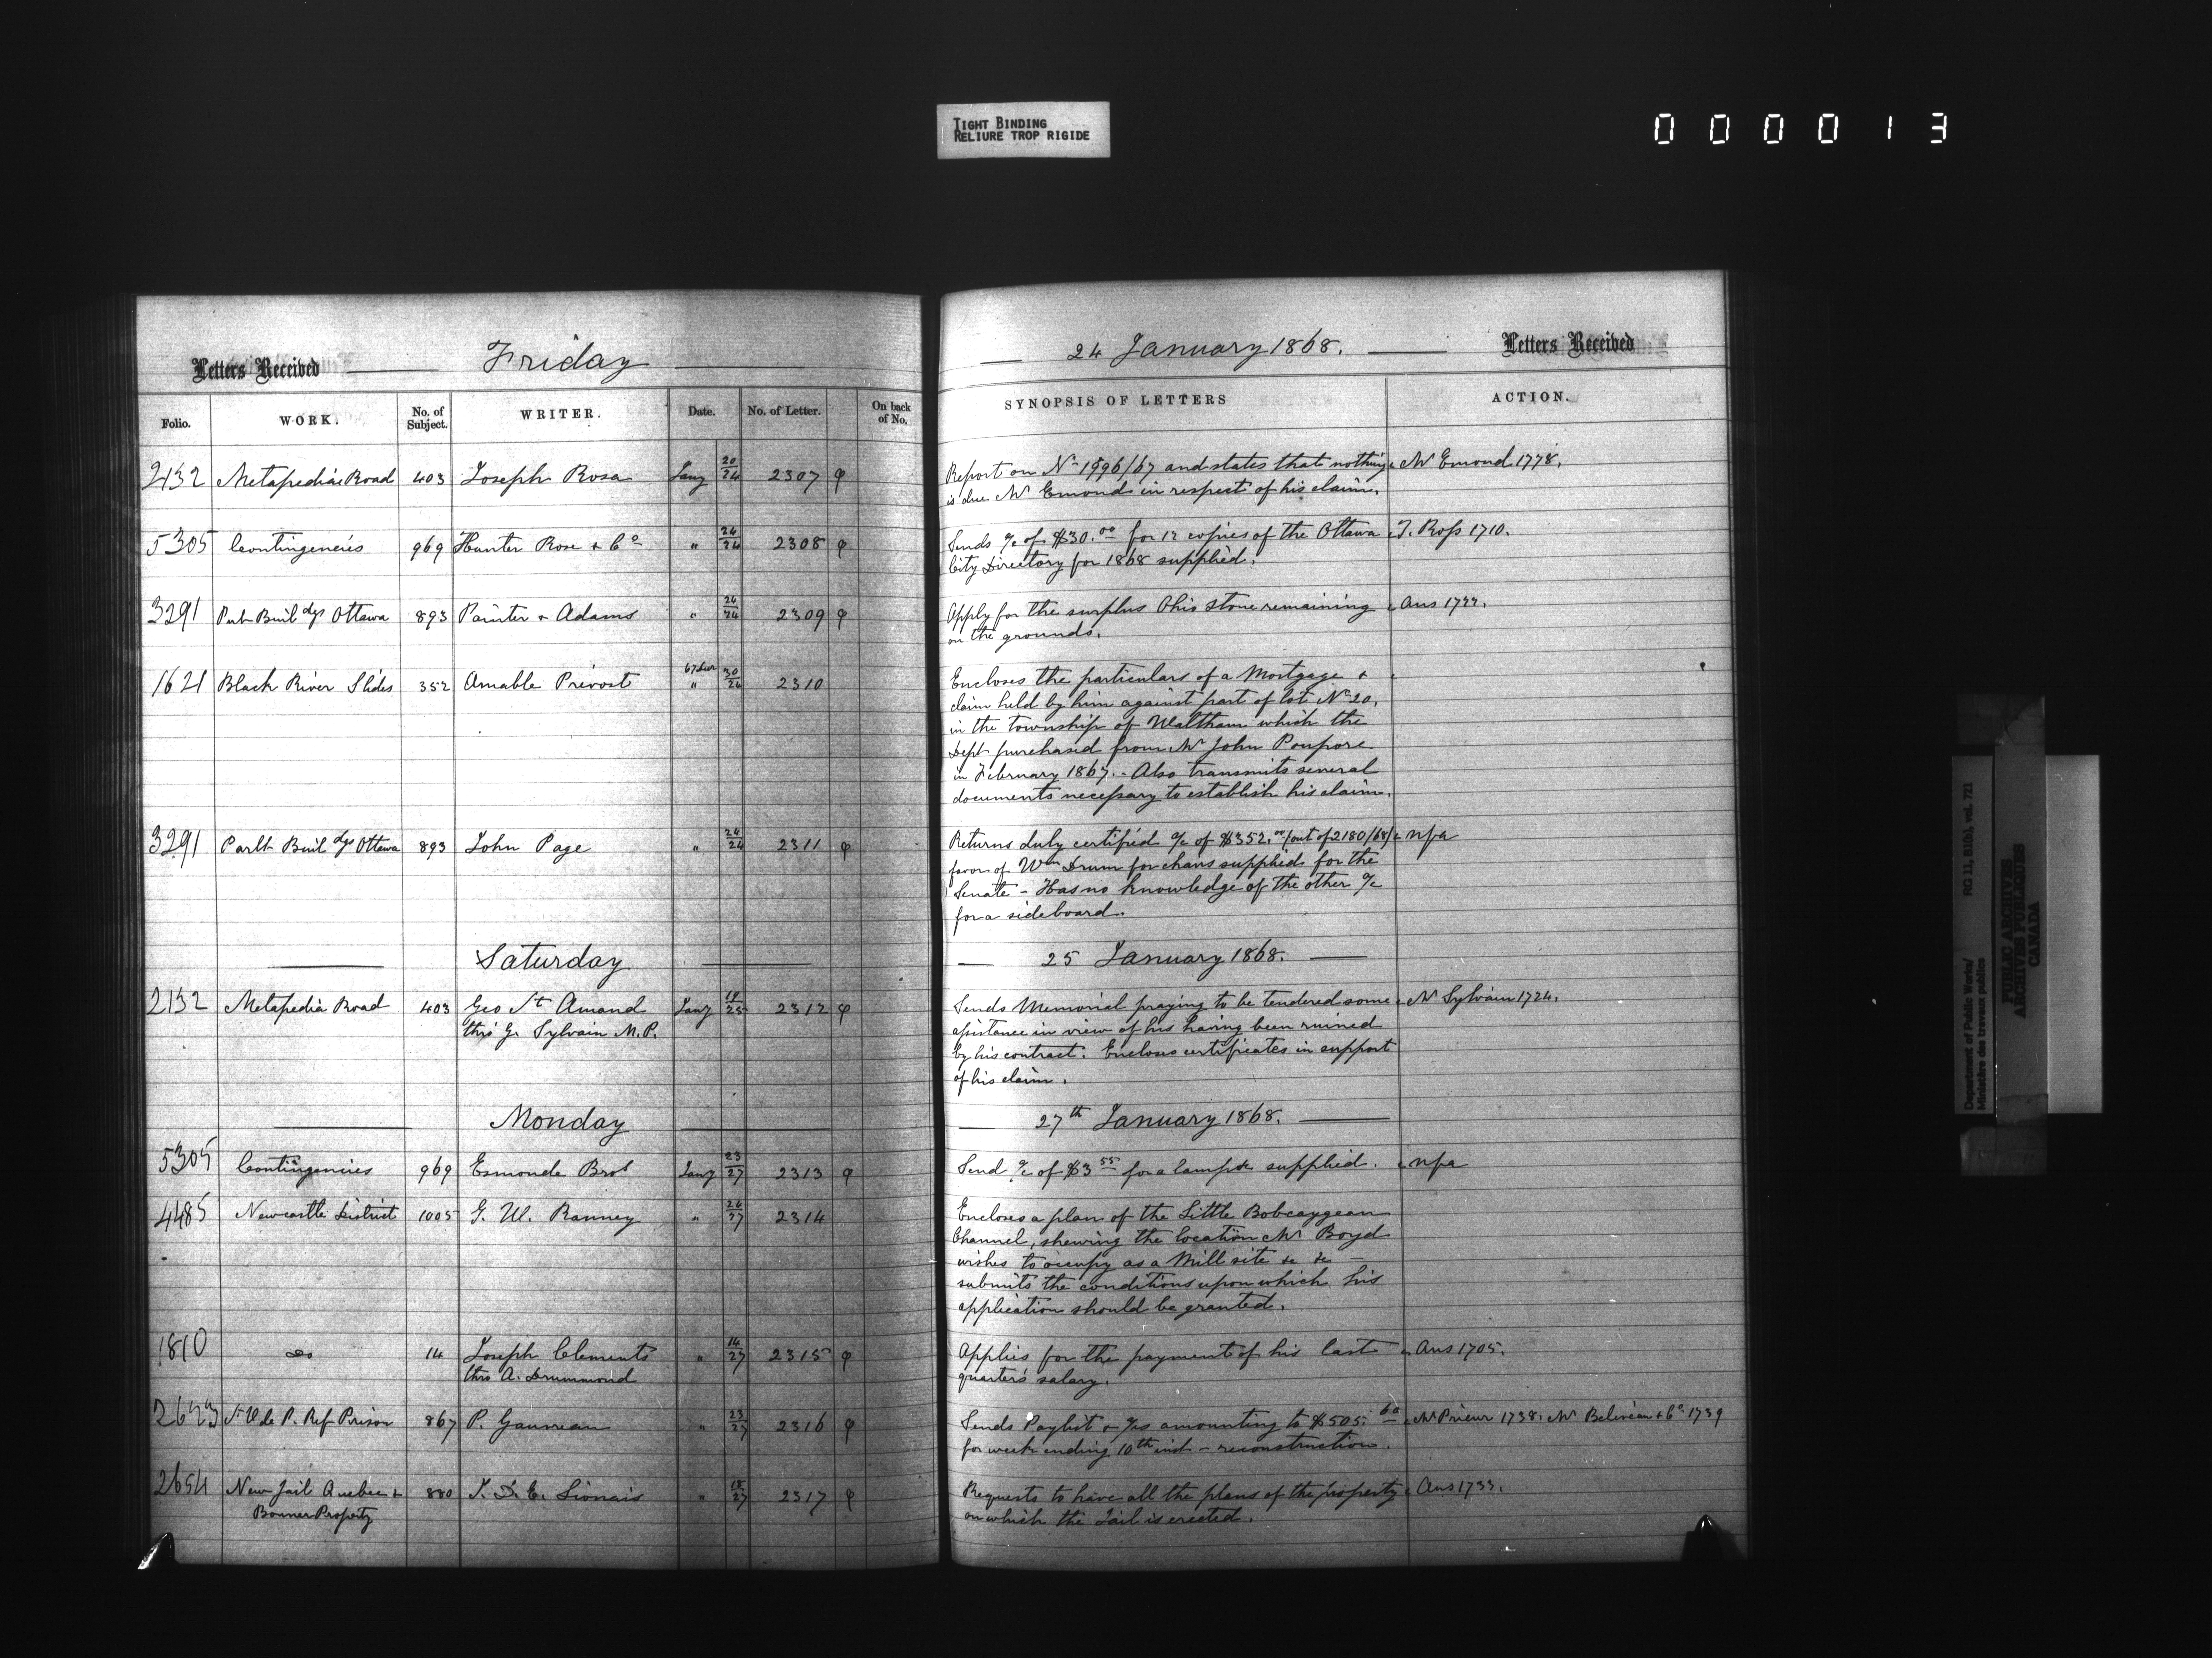 TIGHT BINDING
RELIURE TROP RIGIDE
000013
Letters Received
Friday
24 January 1868.
Letters Received
Folio.
WORK.
No. of Subject.
WRITER.
Date.
No. of Letter.
On back of No.
SYNOPSIS OF LETTERS
ACTION.
2132 Metapedia Road 403 Joseph Rosa Jany 20/24 2307 φ
Report on No 1996/67 and states that nothing
is due Mr Emond in respect of his claim.
Mr Emond 1778.
5305 Contingencies 969 Hunter Rose & Co " 24/24 2308 φ
Sends a/c of $30.00 for 12 copies of the Ottawa
City Directory for 1868 supplied.
T. Ross 1710.
3291 Pub Buildgs Ottawa 893 Painter & Adams " 24/24 2309 φ
Apply for the surplus Ohio stone remaining
on the grounds.
Ans 1722.
1621 Black River Slides 352 Amable Prévost 67 Decr " 30/24 2310
Encloses the particulars of a Mortgage &
claim held by him against part of lot No 20,
in the township of Waltham which the
Dept purchased from Mr John Poupore
in February 1867. - Also transmits several
documents necessary to establish his claim.
3291 Parlt Buildgs Ottawa 893 John Page " 24/24 2311 φ
Returns duly certified a/c of $352.00 (out of 2180/68)
favor of Wm Drum for chairs supplied for the
Senate - Has no knowledge of the other a/c
for a sideboard.
npa
Saturday
25 January 1868.
2132 Metapedia Road 403 Geo St Amand Jany 19/25 2312 φ
thro' G. Sylvain M.P.
Sends Memorial praying to be tendered some
assistance in view of his having been ruined
by his contract. Encloses certificates in support
of his claim.
Mr Sylvain 1724.
Monday
27th January 1868.
5305 Contingencies 969 Esmonde Bros Jany 23/27 2313 φ
Send a/c of $3 55 for a lamp &c supplied.
npa
4485 Newcastle District 1005 G. W. Ranney " 24/27 2314
Encloses a plan of the Little Bobcaygean
Channel, shewing the location Mr Boyd
wishes to occupy as a Mill site &c &c
submits the conditions upon which his
application should be granted.
1810 do 14 Joseph Clements " 14/27 2315 φ
thro A. Drummond
Applies for the payment of his last
quarter's salary.
Ans 1705.
St V de P. Ref Prison 867 P. Gauvreau " 23/27 2316 φ
Sends Paylist & a/cs amounting to $505. 60
for week ending 10th inst - reconstruction.
Mr Prieur 1738. Mr Beliveau & Co. 1739
2654 New Jail Quebec & 880 J. D. E. Lionais " 18/27 2317 φ
Bonner Property
Requests to have all the plans of the property
on which the Jail is erected.
Ans 1733.
Department of Public Works/
Ministère des travaux publics
RG 11, B1(b), vol. 721
PUBLIC ARCHIVES
ARCHIVES PUBLIQUES
CANADA